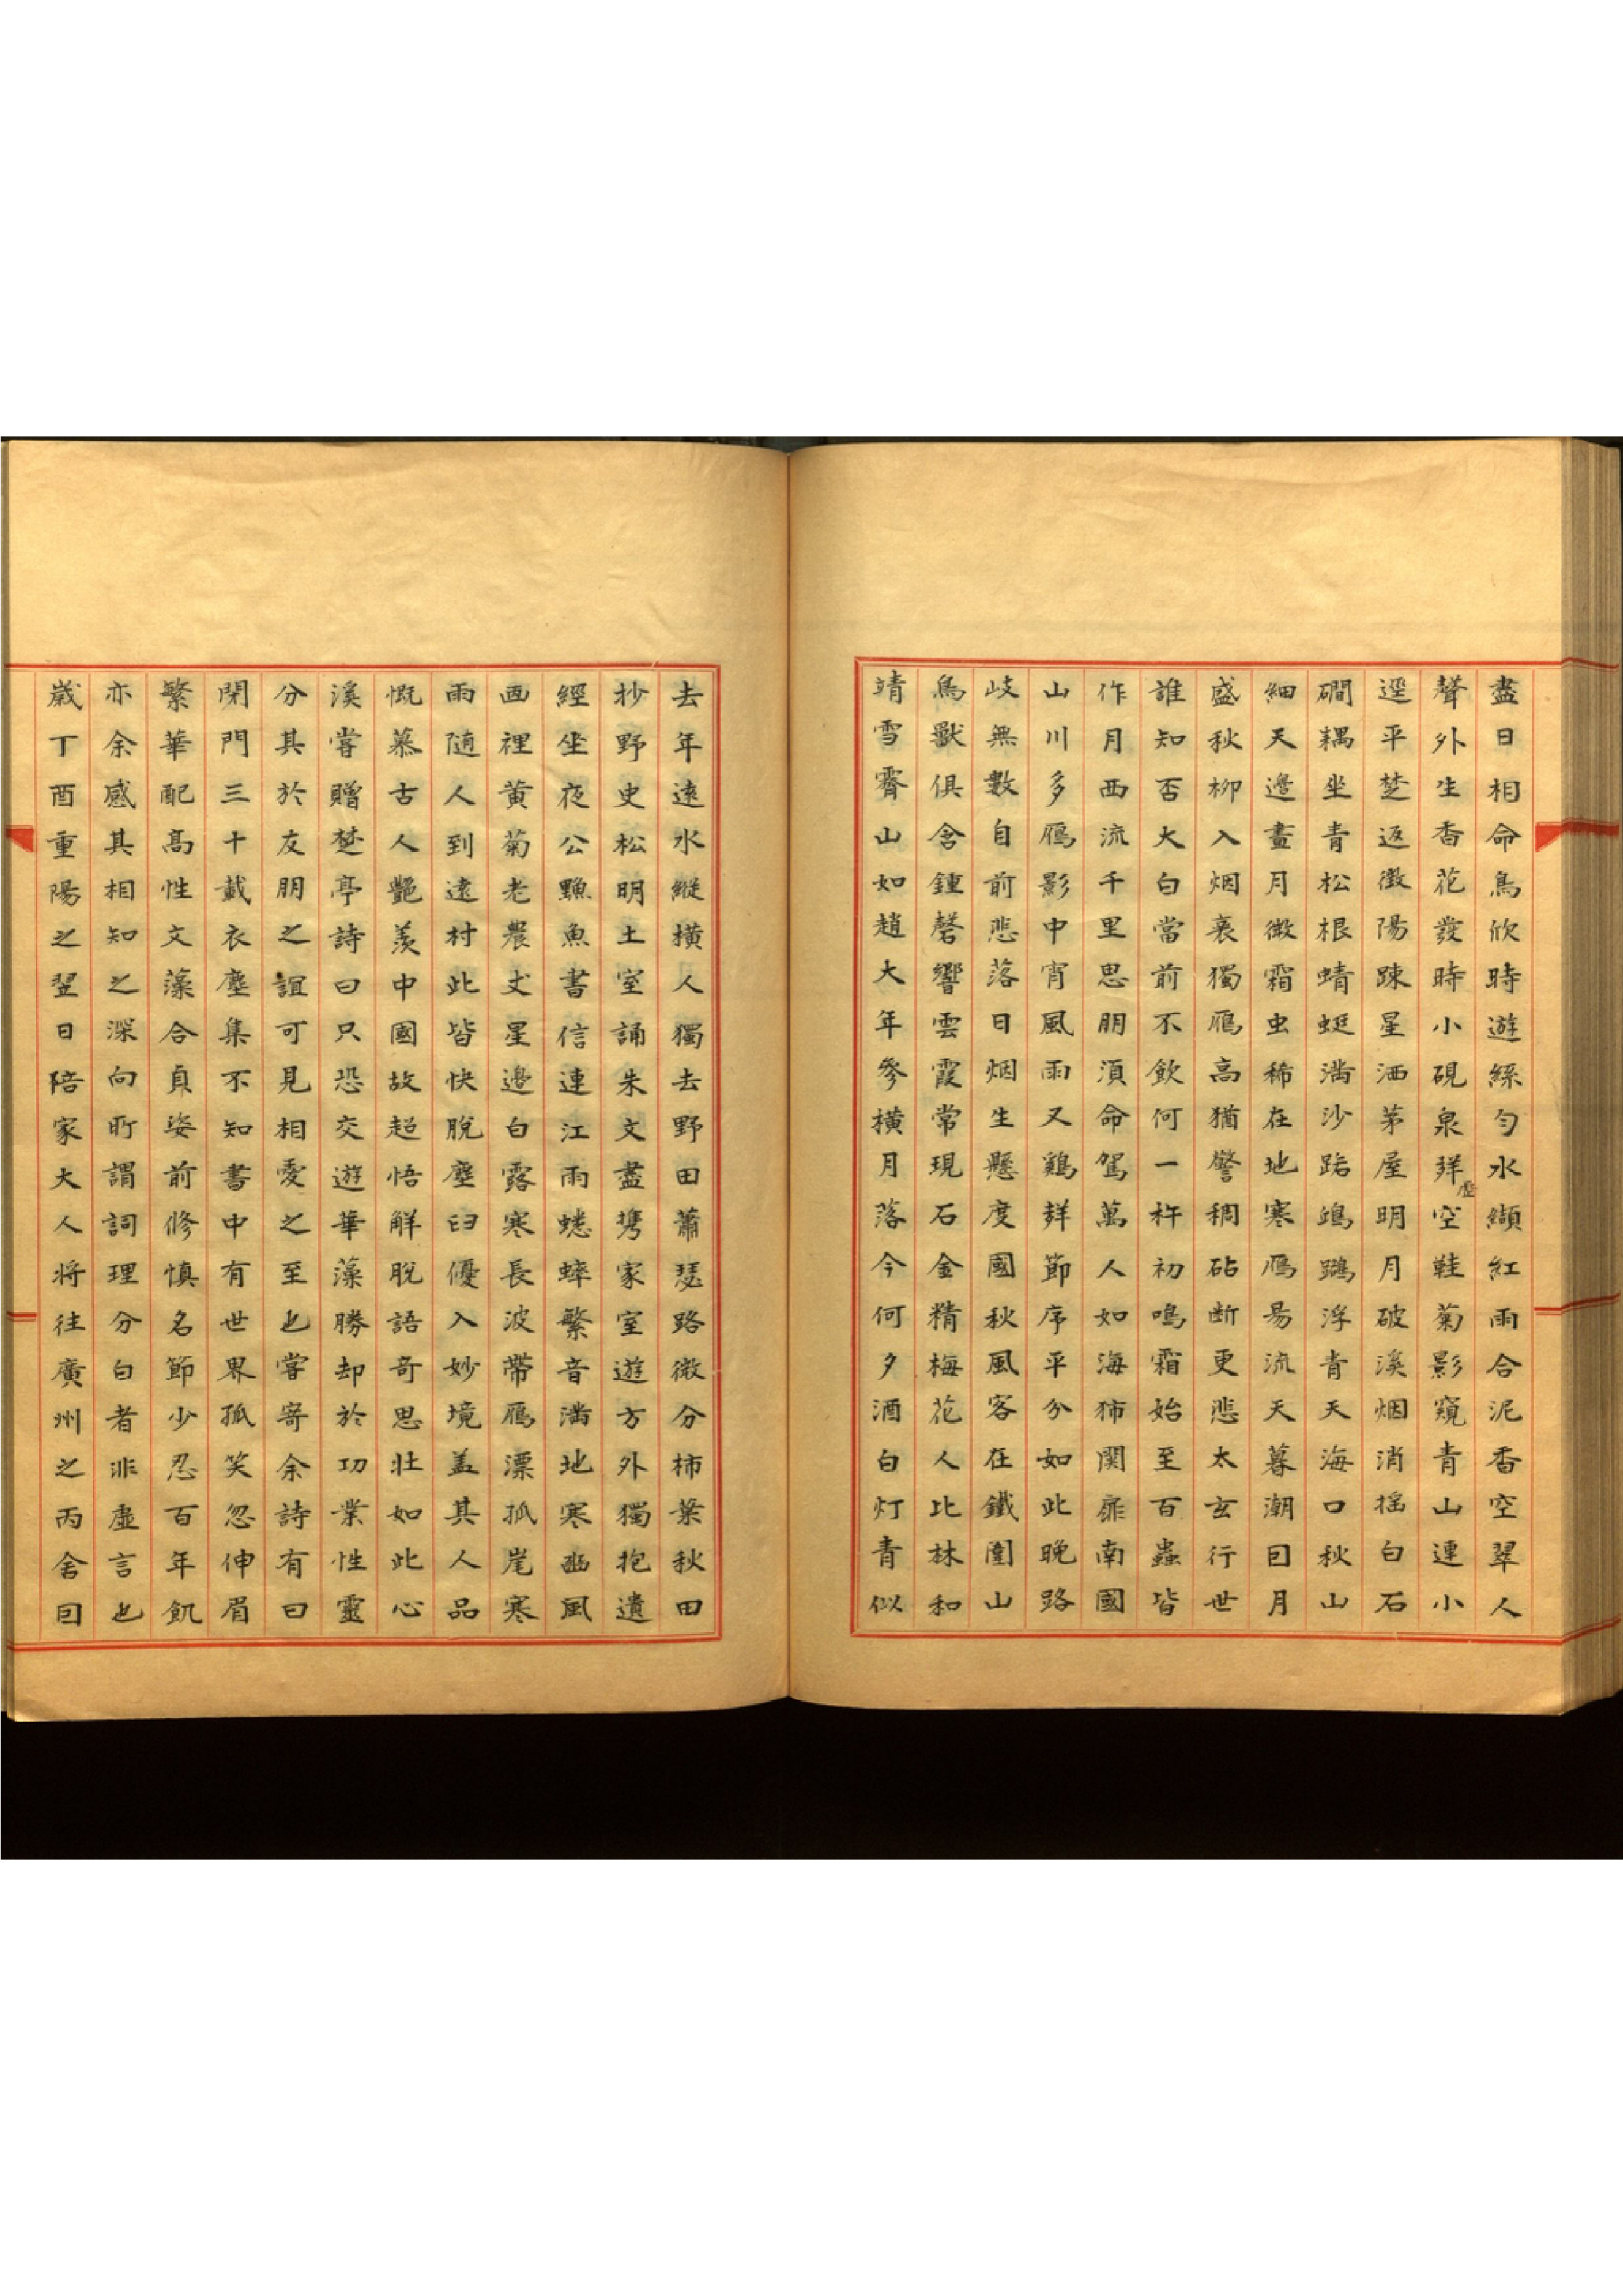 盡日相命鳥欣時遊絲勻水纈紅雨合泥香空翠人
聲外生香花發時小硯泉群空鞋菊影窺青山連小
虛
逕平楚返徴陽踈星洒茅屋明月破溪烟消揺白石
磵耦坐青松根蜻蜓満沙跕鴻鷀浮青天海口秋山
細天邉畫月微霜虫稀在地寒鴈易流天暮潮囙月
盛秋柳入烟衰獨鴈高猶譬稠砧断更悲太玄行世
誰知否大白當前不飲何一杯初鳴霜始至百蟲皆
作月西流千里思朋湏命駕萬人如海㹳関扉南國
山川多鴈影中宵風雨又鷄群節序平分如此晚路
岐無數自前悲落日烟生懸度國秋風客在鐵圍山
鳥獸俱含鍾磬響雲霞常現石金精梅花人比林和
靖雪霽山如趙大年參橫月落今何夕酒白灯青似
去年遠水縱橫人獨去野田蕭瑟路微分柿葉秋田
抄野史松明土室誦朱文盡携家室遊方外獨抱遺
經坐夜公鱻魚書信連江雨蟋蟀繁音満地寒幽風
画裡黄菊老農丈星邉白露寒長波帶鴈漂孤崖寒
雨随人到遠村此皆快脫塵臼優入妙境盖其人品
慨慕古人艶羨中國故超悟解脫語奇思壯如此心
溪嘗贈楚亭詩曰只恐交遊華藻勝却於功業性靈
分其於友朋之誼可見相愛之至也嘗寄余詩有曰
閉門三十載衣塵集不知書中有世界孤笑忽伸眉
繁華配髙性文藻合貞姿前修慎名節少忍百年飢
亦余感其相知之深向所謂詞理分白者非虛言也
歲丁酉重陽之翌日陪家大人将往廣州之丙舍囙